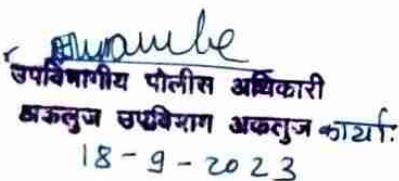 उपविभागीय पोलीस अधिकारी
अकलुज उपविभाग अकलुज कार्या.
18-9-2023